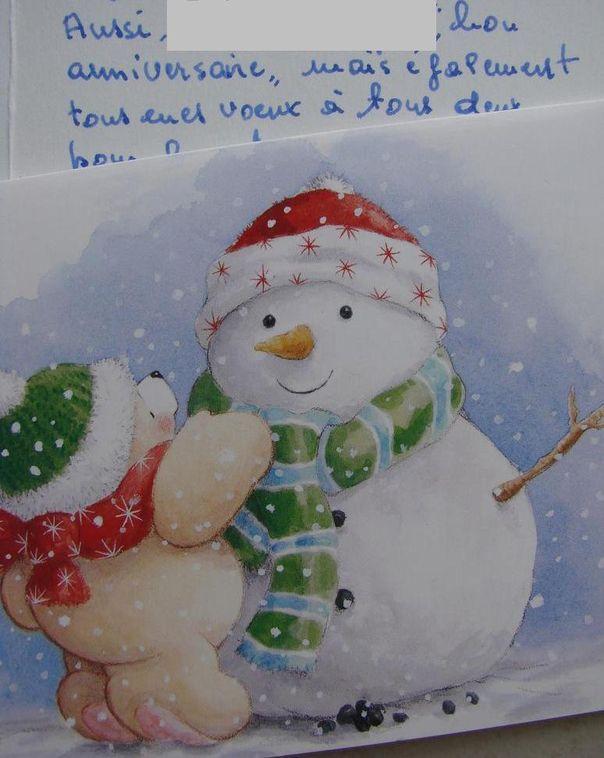 Aussi, bon
anniversaire, mais également
tous mes voeux à tous deux